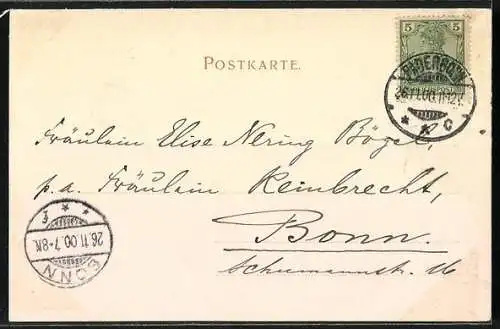 POSTKARTE.
5 5
PADERBORN
26.11.00.11-12V.
* * C
Fräulein Elise Nering Bögel,
p. a. Fräulein Reinbrecht,
Bonn.
Schumannstr. 16
26.11.00.7-8N.
BONN